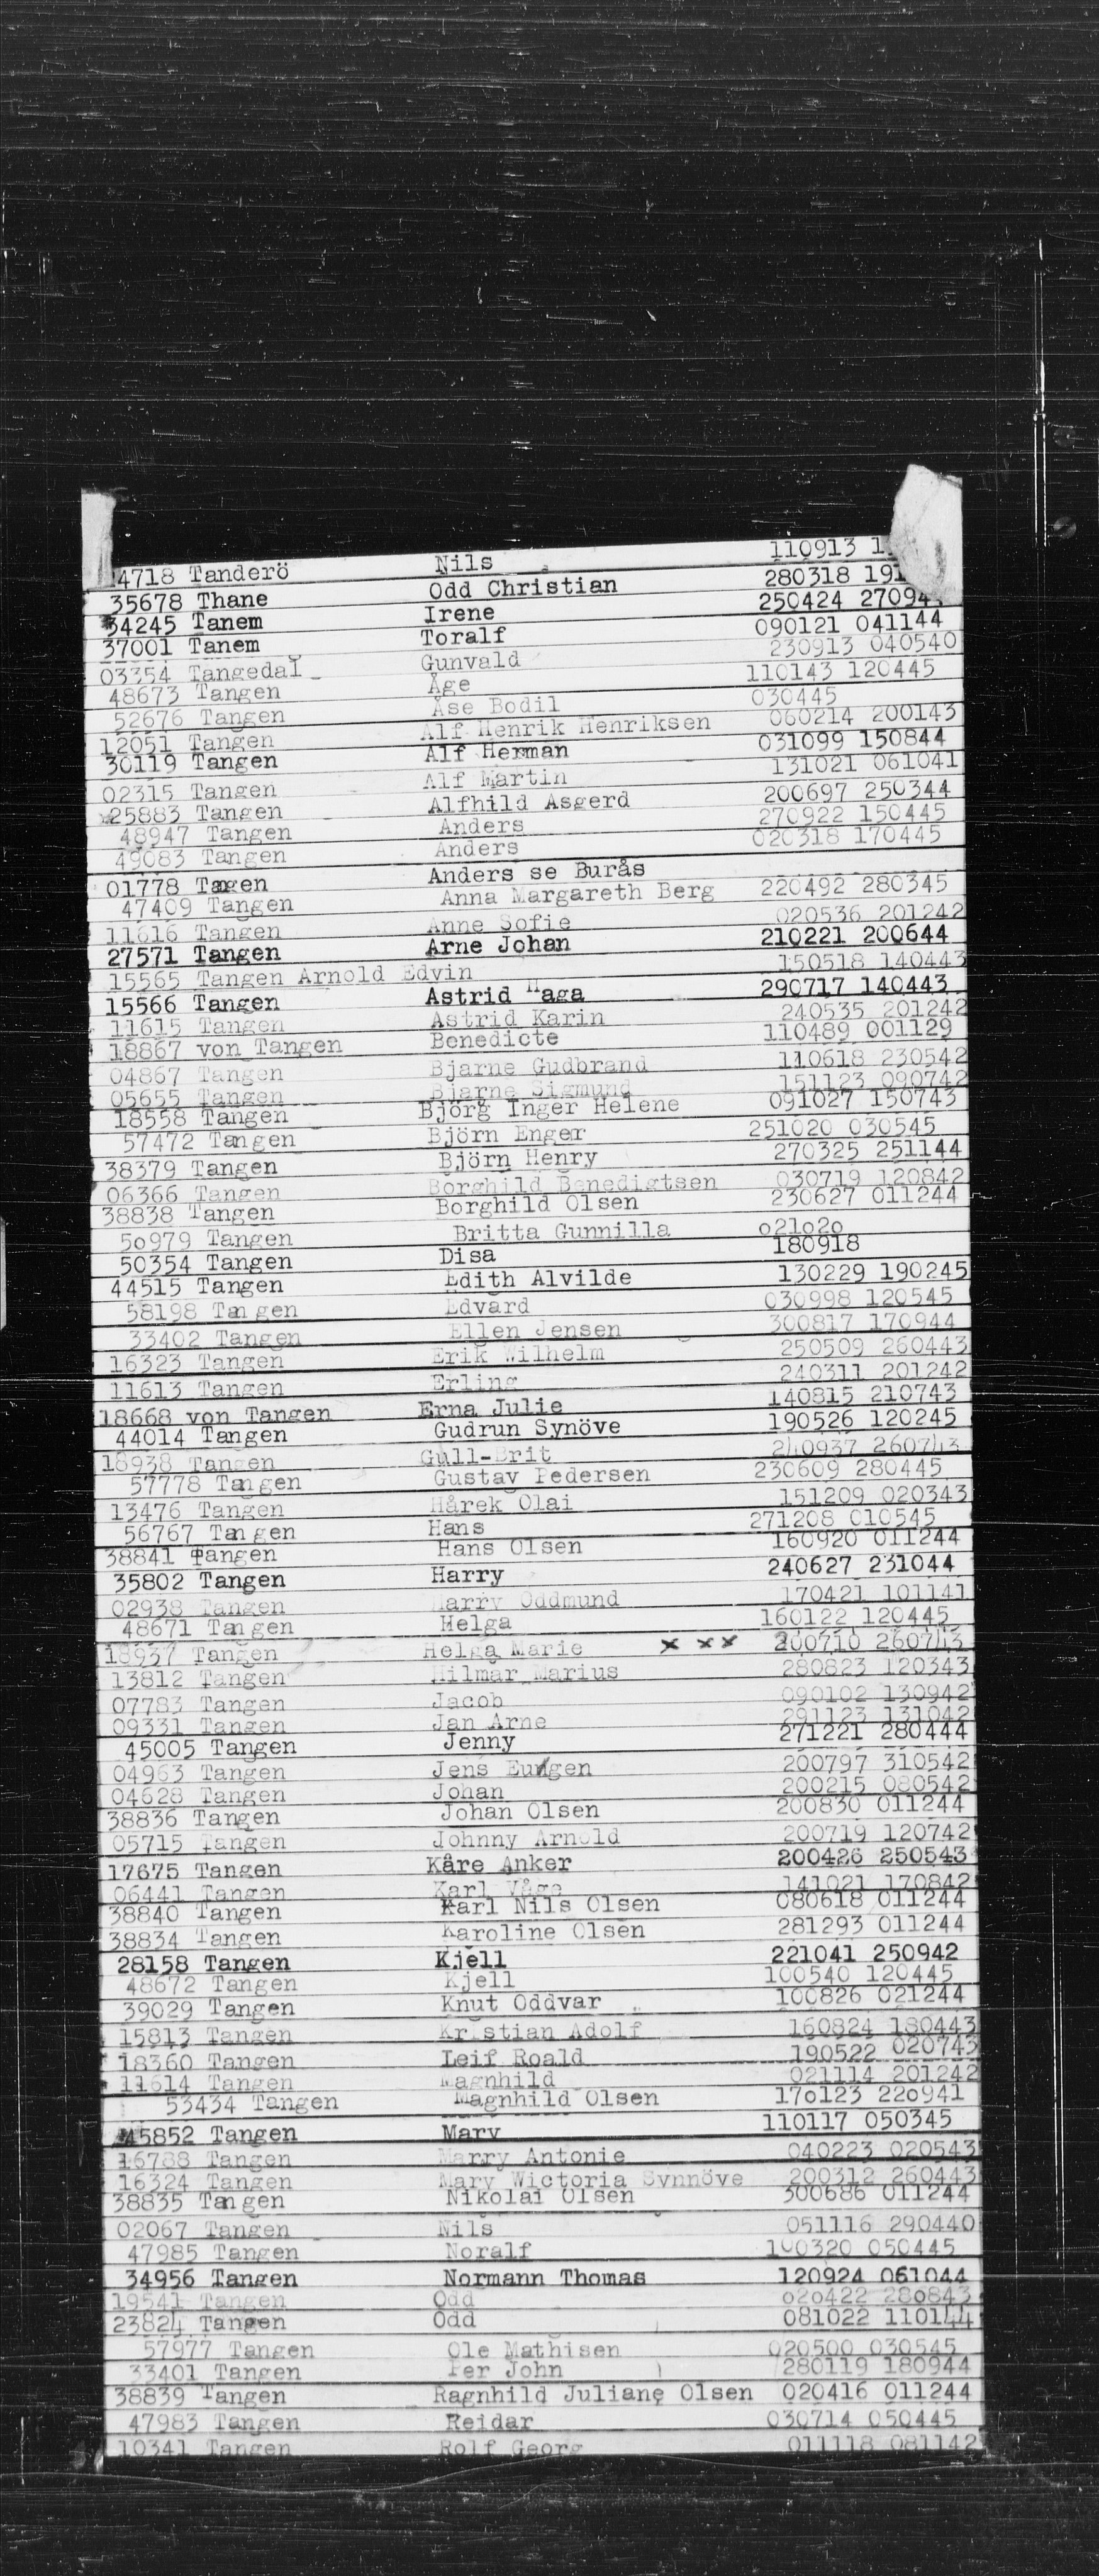 4718 Tanderö Nils 110913
35678 Thane Odd Christian 280318
34245 Tanem Irene 250424
37001 Tanem Toralf 090121 041144
03354 Tangedal Gunvald 230913 040540
48673 Tangen Åge 110143 120445
52676 Tangen Åse Bodil 030445
12051 Tangen Alf Henrik Henriksen 060214 200143
30119 Tangen Alf Herman 031099 150844
02315 Tangen Alf Martin 131021 061041
25883 Tangen Alfhild Asgerd 200697 250344
48947 Tangen Anders 270922 150445
49083 Tangen Anders 020318 170445
01778 Tangen Anders se Burås
47409 Tangen Anna Margareth Berg 220492 280345
11616 Tangen Anne Sofie 020536 201242
27571 Tangen Arne Johan 210221 200644
15565 Tangen Arnold Edvin 150518 140443
15566 Tangen Astrid Haga 290717 140443
11615 Tangen Astrid Karin 240535 201242
18867 von Tangen Benedicte 110489 001129
04867 Tangen Bjarne Gudbrand 110618 230542
05655 Tangen Bjarne Sigmund 151123 090742
18558 Tangen Björg Inger Helene 091027 150743
57472 Tangen Björn Enger 251020 030545
38379 Tangen Björn Henry 270325 251144
06366 Tangen Borghild Benedigtsen 030719 120842
38838 Tangen Borghild Olsen 230627 011244
50979 Tangen Britta Gunnilla 021020
50354 Tangen Disa 180918
44515 Tangen Edith Alvilde 130229 190245
58198 Tangen Edvard 030998 120545
33402 Tangen Ellen Jensen 300817 170944
16323 Tangen Erik Wilhelm 250509 260443
11613 Tangen Erling 240311 201242
18668 von Tangen Erna Julie 140815 210743
44014 Tangen Gudrun Synöve 190526 120245
18938 Tangen Gull-Brit 240937 260743
57778 Tangen Gustav Pedersen 230609 280445
13476 Tangen Hårek Olai 151209 020343
56767 Tangen Hans 271208 010545
38841 Tangen Hans Olsen 160920 011244
35802 Tangen Harry 240627 231044
02938 Tangen Harry Oddmund 170421 101141
48671 Tangen Helga 160122 120445
18937 Tangen Helga Marie x x x 200710 260743
13812 Tangen Hilmar Marius 280823 120343
07783 Tangen Jacob 090102 130942
09331 Tangen Jan Arne 291123 131042
45005 Tangen Jenny 271221 280444
04963 Tangen Jens Eugen 200797 310542
04628 Tangen Johan 200215 080542
38836 Tangen Johan Olsen 200830 011244
05715 Tangen Johnny Arnold 200719 120742
17675 Tangen Kåre Anker 200426 250543
06441 Tangen Karl Våge 141021 170842
38840 Tangen Karl Nils Olsen 080618 011244
38834 Tangen Karoline Olsen 281293 011244
28158 Tangen Kjell 221041 250942
48672 Tangen Kjell 100540 120445
39029 Tangen Knut Oddvar 100826 021244
15813 Tangen Kristian Adolf 160824 180443
18360 Tangen Leif Roald 190522 020743
11614 Tangen Magnhild 021114 201242
53434 Tangen Magnhild Olsen 170123 220941
45852 Tangen Mary 110117 050345
16788 Tangen Marry Antonie 040223 020543
16324 Tangen Mary Wictoria Synnöve 200312 260443
38835 Tangen Nikolai Olsen 300686 011244
02067 Tangen Nils 051116 290440
47985 Tangen Noralf 100320 050445
34956 Tangen Normann Thomas 120924 061044
19541 Tangen Odd 020422 280843
23824 Tangen Odd 081022 110144
57977 Tangen Ole Mathisen 020500 030545
33401 Tangen Per John 280119 180944
38839 Tangen Ragnhild Juliane Olsen 020416 011244
47983 Tangen Reidar 030714 050445
10341 Tangen Rolf Georg 011118 081142